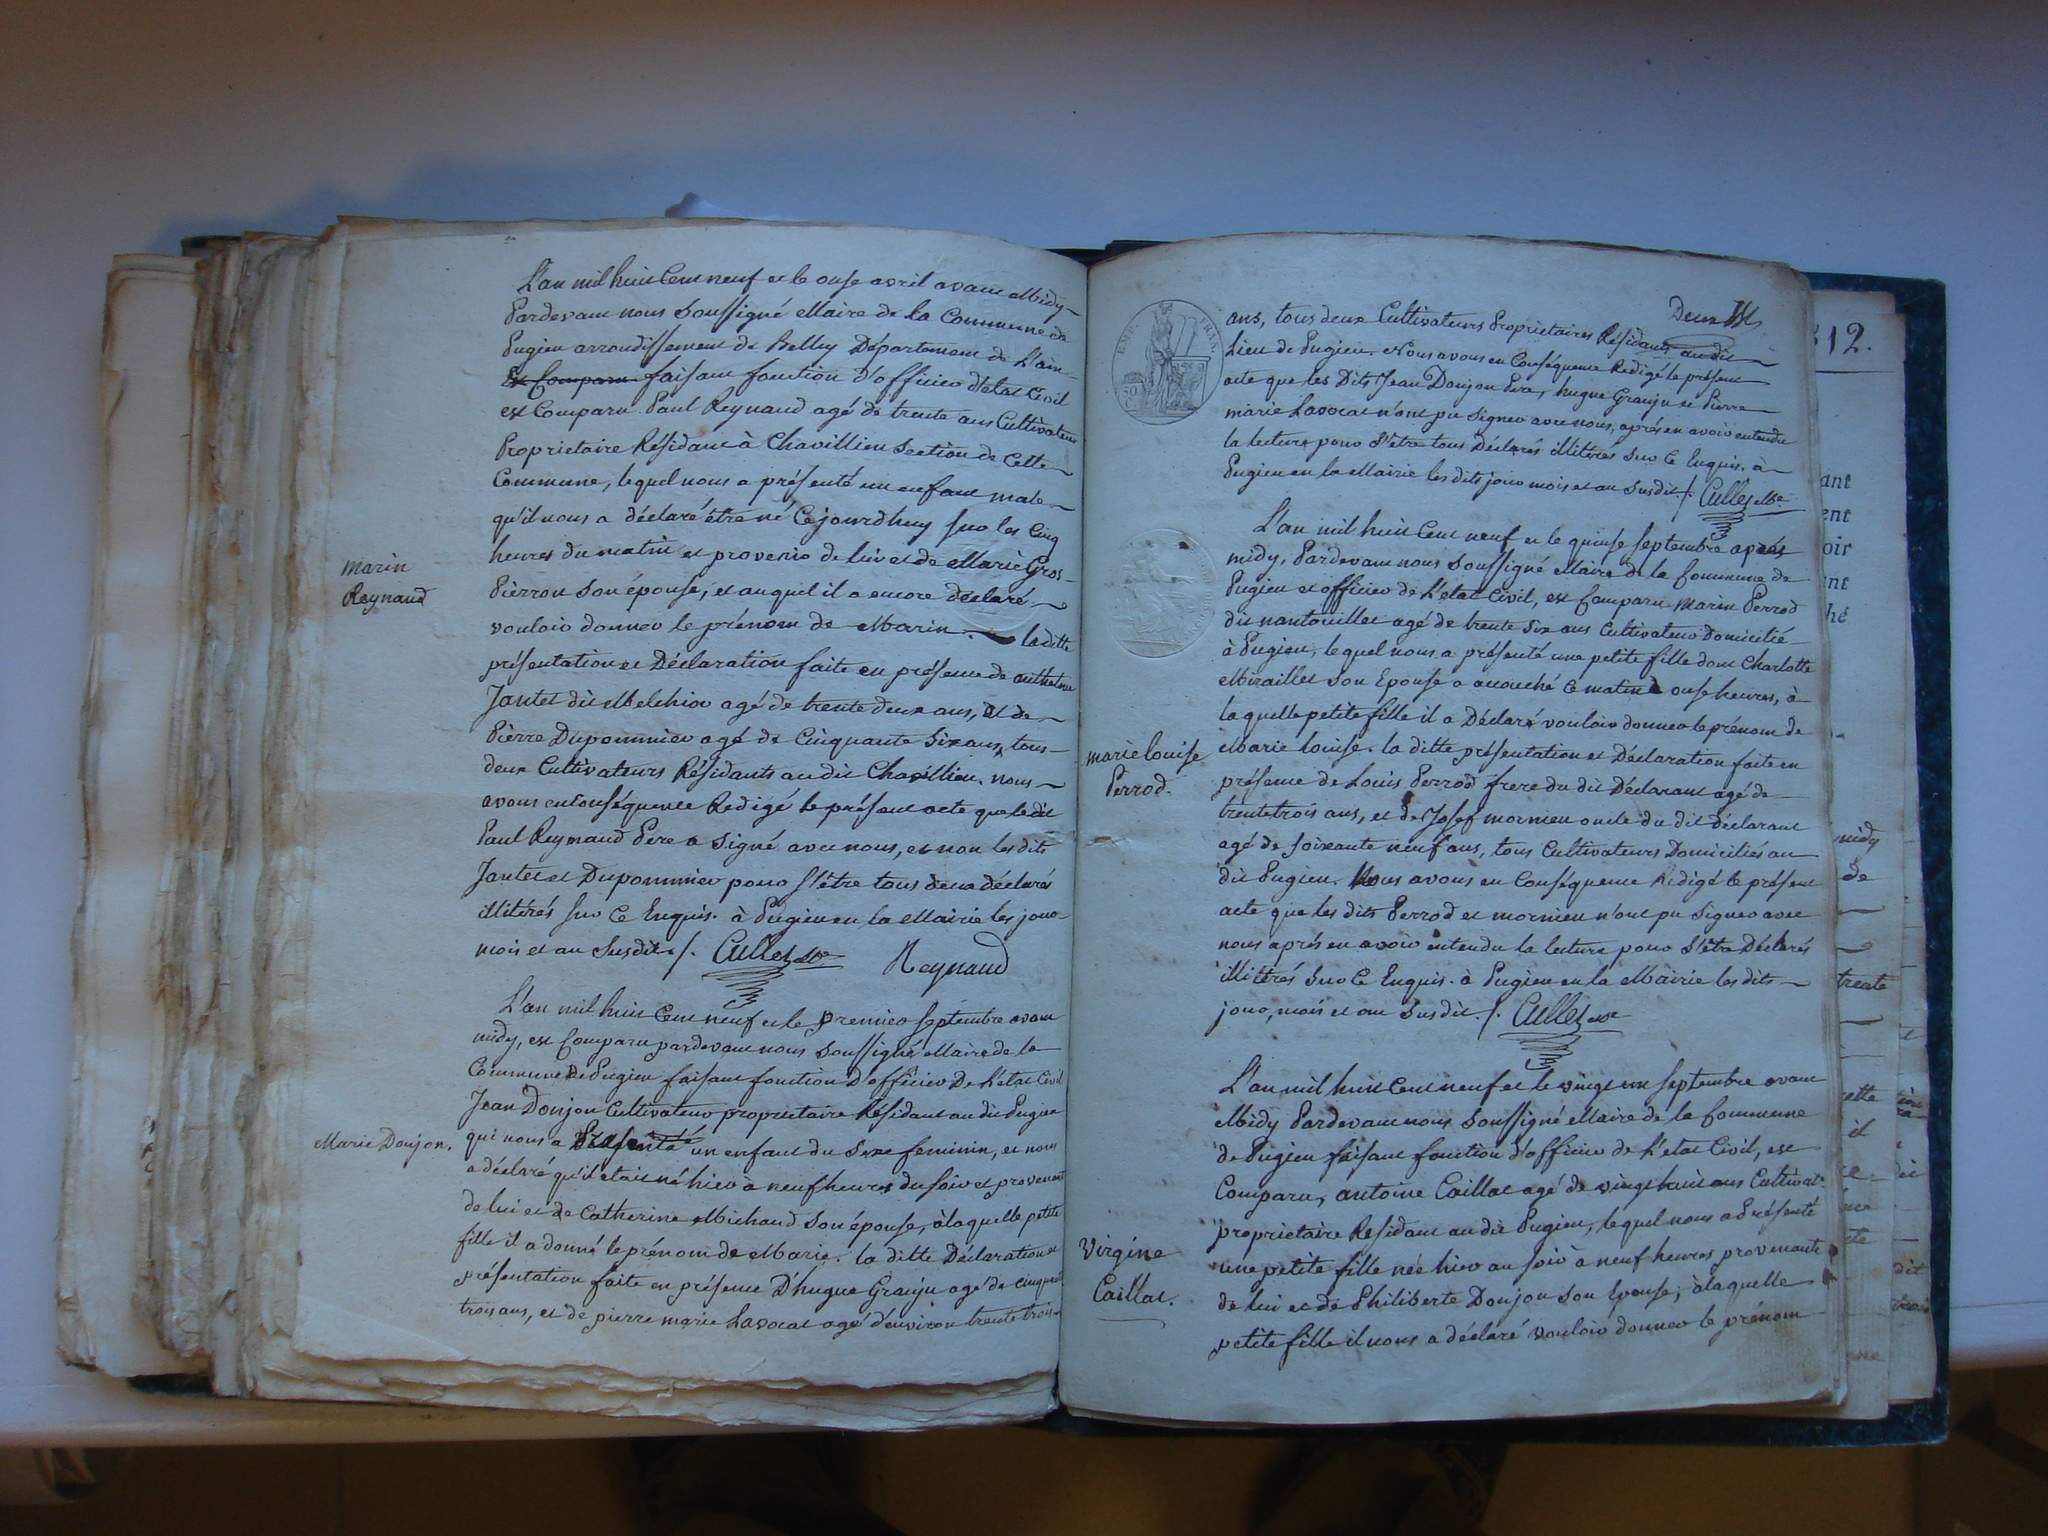 L'an mil huit Cent neuf et le onse avril avant Midy
Pardevant nous Soussigné Maire de la Commune de
Pugieu arrondissement de Belley Département de L'ain
Est Comparu faisant fonction d'officier d'état Civil
est Comparu Paul Reynaud agé de trente ans Cultivateur
Proprietaire Résidant à Chavillieu Section de Cette
Commune, lequel nous a présenté un enfant male
qu'il nous a déclaré être né Cejourdhuy sur les Cinq
heures du matin et provenir de lui et de Marie Gros-
Pierron son épouse, et auquel il a encore déclaré
vouloir donner le prénom de Marin. la ditte
présentation et Déclaration faite en présence de anthelme
Jantet dit Melchior agé de trente deux ans, et de
Pierre Dupommier agé de Cinquante Six ans, tous
deux Cultivateurs Résidants au dit Chavillieu. nous
avons en Conséquence Redigé le présent acte que le dit
Paul Reynaud Pere a Signé avec nous, et non les dits
Jantet et Dupommier pour s'être tous deux déclarés
illitérés sur Ce Enquis. à Pugieu en la Mairie les jour
mois et an Susdit ./. Cullet Mre Reynaud
marin
Reynaud
L'an mil huit Cent neuf et le premier septembre avant
midy, est Comparu pardevant nous Soussigné Maire de la
Commune de Pugieu faisant fonction d'officier De L'etat Civil
Jean Donjon Cultivateur proprietaire Résidant au dit Pugieu
qui nous a Présenté un enfant du Sexe feminin, et nous
a déclaré qu'il etait né hier à neuf heures du soir et provenant
de lui et de Catherine Michaud Son épouse, à laquelle petite
fille il a donné le prénom de Marie. la ditte Déclaration et
présentation faite en présence D'hugue Granju agé de cinquante
trois ans, et de pierre marie Lavocat agé d'environ trente trois
Marie Donjon.
Deux
EMP. FRAN.
50
C
ans, tous deux Cultivateurs Proprietaires Résidants au dit
Lieu de Pugieu. Nous avons en Conséquence Redigé le présent
acte que les Dits Jean Donjon Pere, hugue Granju et Pierre
marie Lavocat n'ont pu Signer avec nous, après en avoir entendu
la lecture pour S'etre tous Déclarés illitérés Sur Ce Enquis. à
Pugieu en la Mairie les dits jour mois et an Susdit ./. Cullet Mre
L'an mil huit Cent neuf et le quinse septembre après
midy, Pardevant nous Soussigné Maire de la Commune de
Pugieu et officier de L'etat Civil, est Comparu Marin Perrod
dit nantouillet agé de trente Six ans Cultivateur Domicilié
à Pugieu, lequel nous a présenté une petite fille dont Charlotte
Miraillet Son Epouse a accouché Ce matin à onse heures, à
laquelle petite fille il a Déclaré vouloir donner le prénom de
Marie Louise. la ditte présentation et Déclaration faite en
présence de Louis Perrod frere du dit Déclarant agé de
trente trois ans, et de Josef mornieu oncle du dit déclarant
agé de soixante neuf ans, tous Cultivateurs Domiciliés au
dit Pugieu. Nous avons en Conséquence Redigé le présent
acte que les dits Perrod et mornieu n'ont pu Signer avec
nous après en avoir entendu la lecture pour S'être Déclarés
illitérés Sur Ce Enquis. à Pugieu en la Mairie les dits
jour, mois et an Susdit. ./. Cullet Mre
marie louise
Perrod.
L'an mil huit Cent neuf et le vingt un septembre avant
Midy Pardevant nous Soussigné Maire de la Commune
de Pugieu faisant fonction d'officier de L'etat Civil, est
Comparu, antoine Caillat agé de vingt huit ans Cultivat.r
proprietaire Résidant au dit Pugieu, lequel nous a Présenté
une petite fille née hier au soir à neuf heures provenante
de lui et de Philiberte Donjon Son Epouse, à laquelle
petite fille il nous a déclaré vouloir donner le prénom
Virginie
Caillat.
12.
ant
ent
oir
ant
hé
midy
de
trente
cette
il
dit